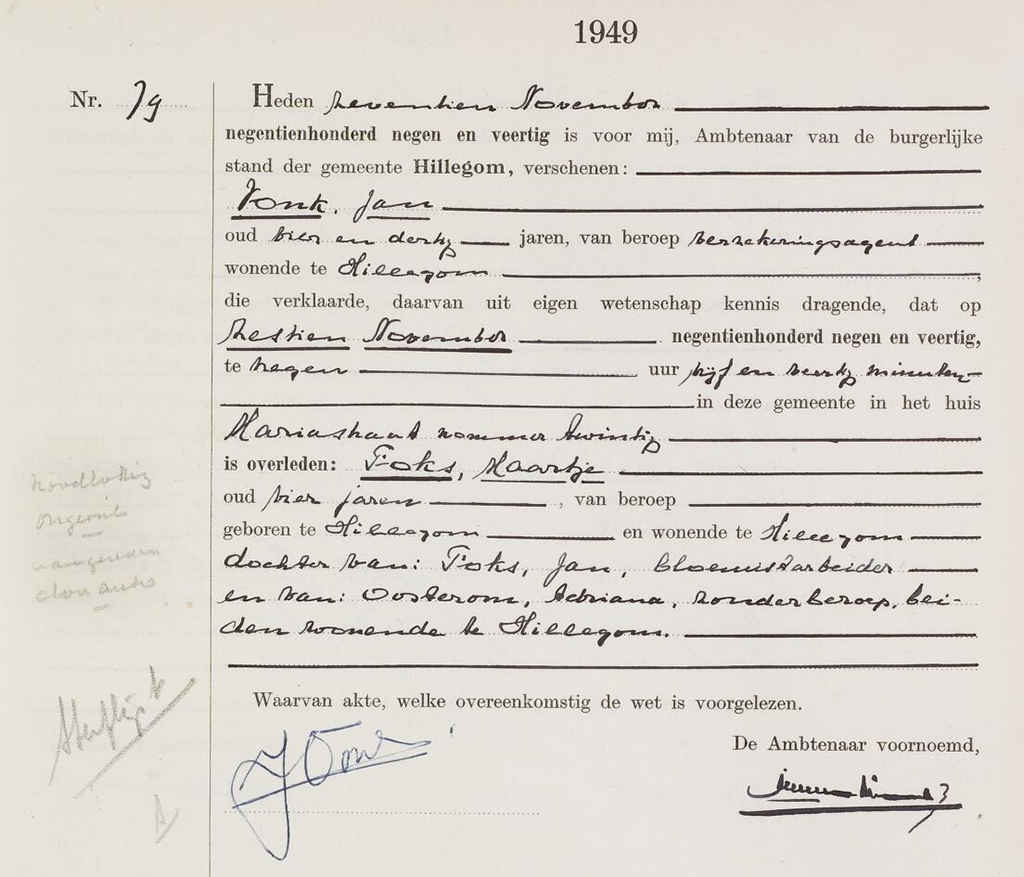 1949
Nr. 79
Heden zeventien November
negentienhonderd negen en veertig is voor mij, Ambtenaar van de burgerlijke
stand der gemeente Hillegom, verschenen:
Vonk, Jan
oud vier en dertig jaren, van beroep verzekeringsagent
wonende te Hillegom,
die verklaarde, daarvan uit eigen wetenschap kennis dragende, dat op
zestien November negentienhonderd negen en veertig,
te negen uur vijf en veertig minuten
in deze gemeente in het huis
Mariastraat nommer twintig
is overleden: Foks, Maartje
oud vier jaren, van beroep
geboren te Hillegom en wonende te Hillegom
dochter van: Foks, Jan, bloemistarbeider
en van: Oosterom, Adriana, zonder beroep, bei-
den wonende te Hillegom.
noodlottig
ongeval
aangereden
door auto
Waarvan akte, welke overeenkomstig de wet is voorgelezen.
De Ambtenaar voornoemd,
J Vonk